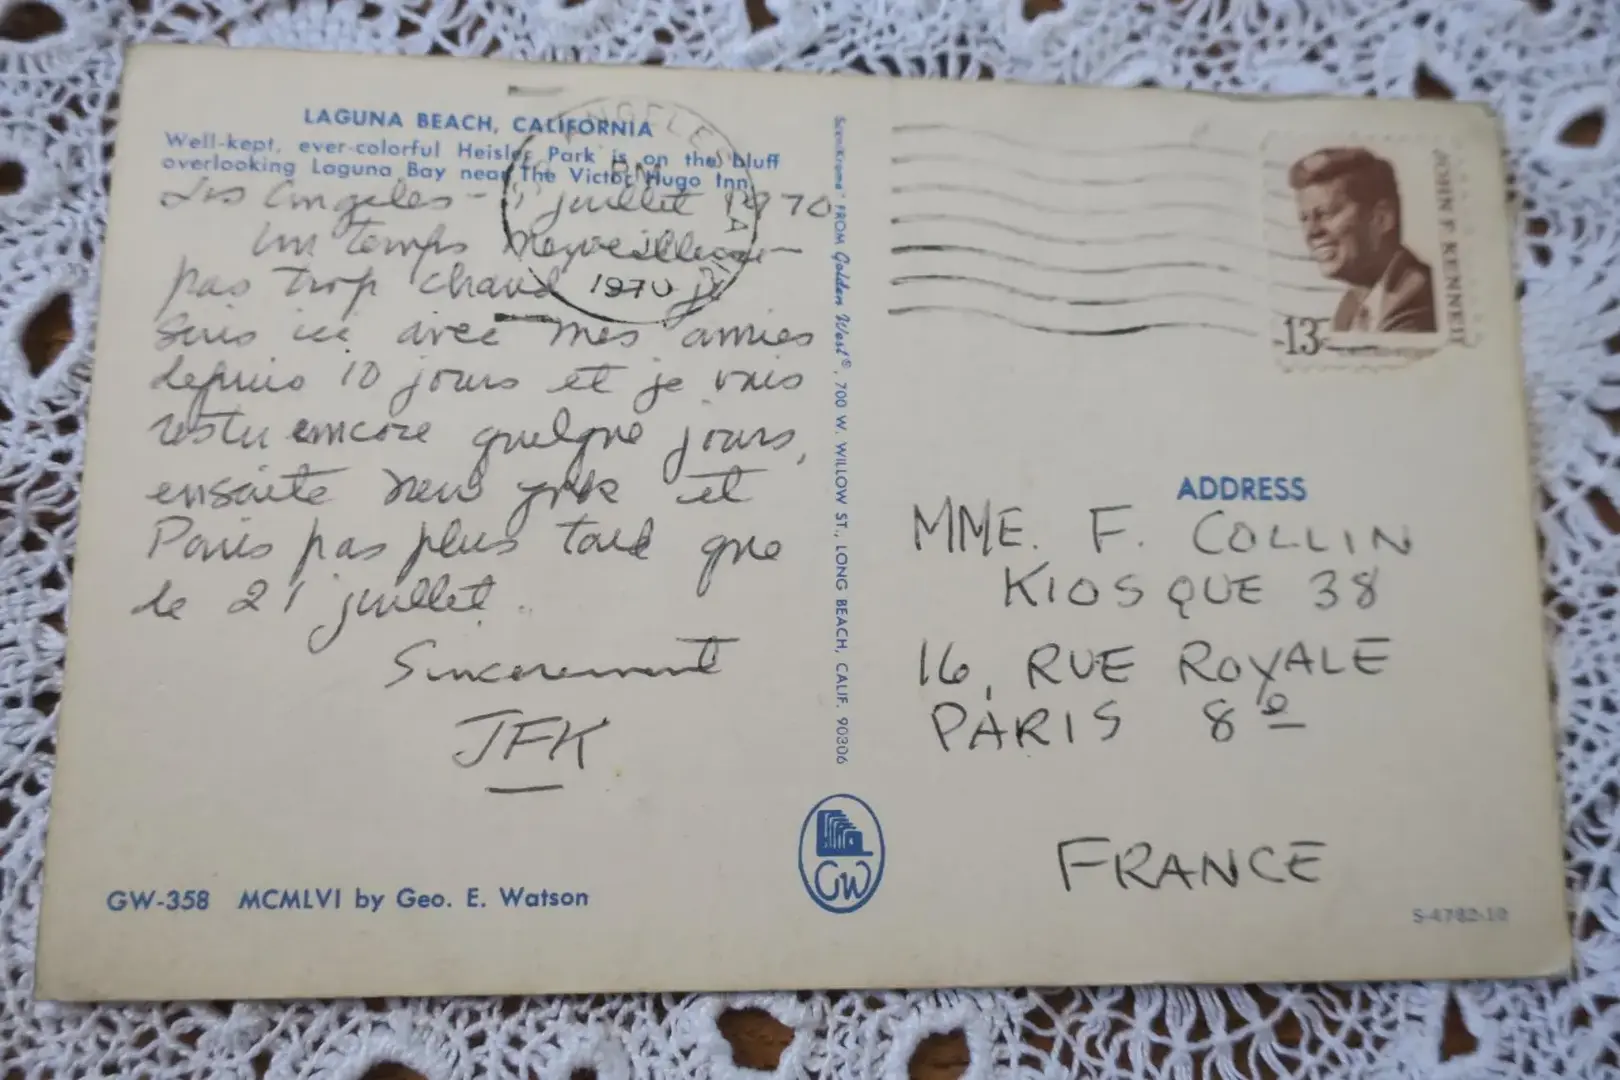 LAGUNA BEACH, CALIFORNIA
Well-kept, ever-colorful Heisler Park is on the bluff
overlooking Laguna Bay near The Victor Hugo Inn
Los Angeles - juillet 1970
Un temps merveilleux -
pas trop chaud Je
suis ici avec mes amies
depuis 10 jours et je vais
rester encore quelque jours,
ensuite New York et
Paris pas plus tard que
le 21 juillet.
Sincerement
JFK
GW-358 MCMLVI by Geo. E. Watson
ANGELES
PM
1970
Scenic Krome" FROM Golden West®, 700 W. WILLOW ST., LONG BEACH, CALIF. 90806
GW
JOHN F. KENNEDY
13c
ADDRESS
MME. F. COLLIN
KIOSQUE 38
16, RUE ROYALE
PARIS 8e
FRANCE
S-4782-10